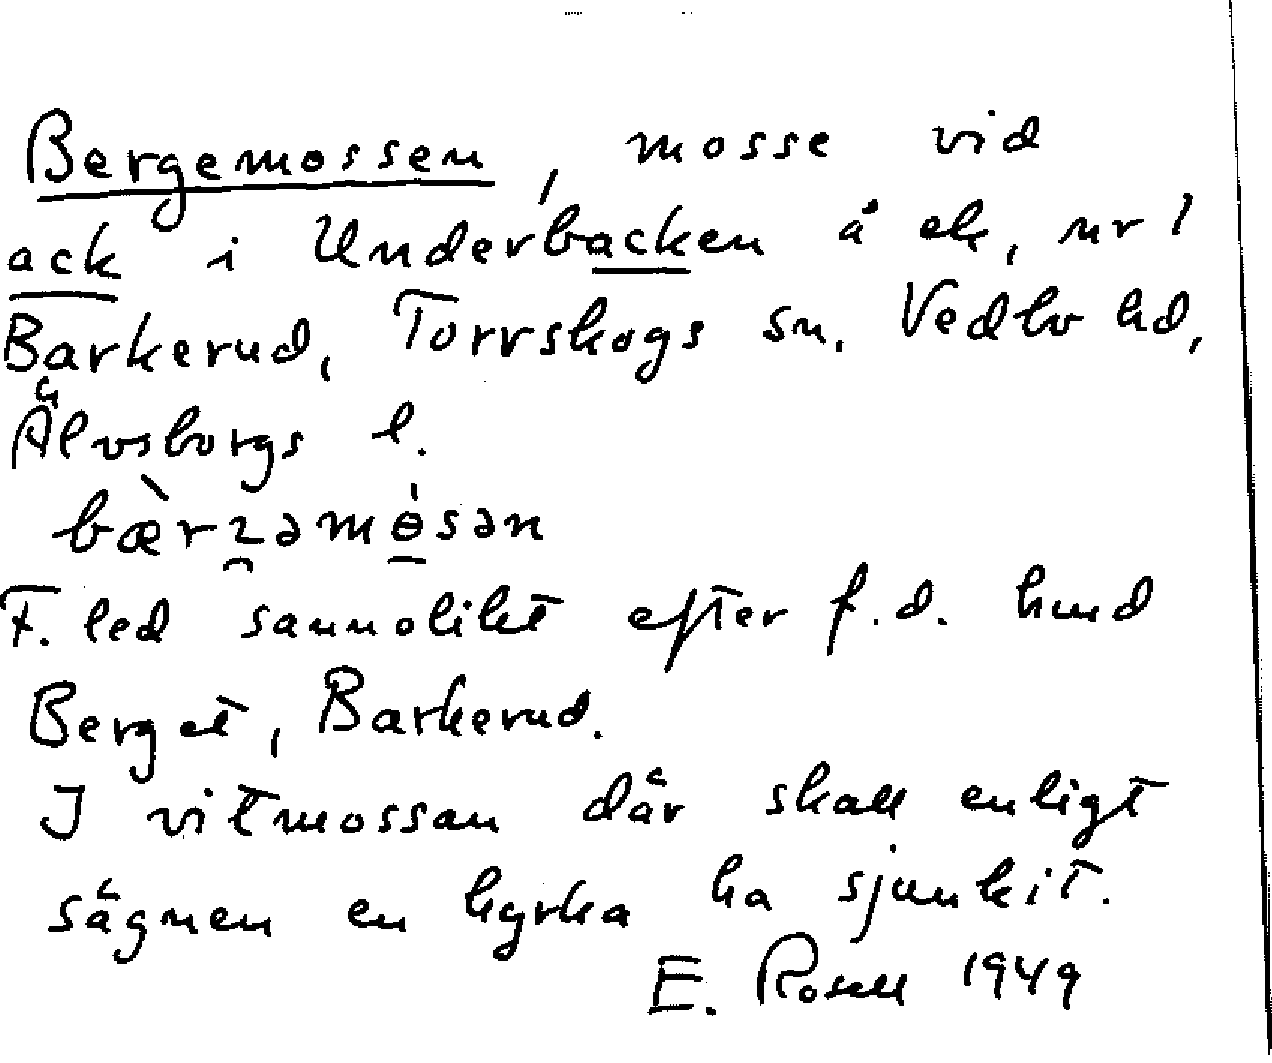 Bergemossen, mosse vid
ack i Underbacken å ek, nr 1
Barkerud, Torrskogs sn. Vedbo hd,
Älvsborgs l.
bæ̀rzəmɵ̀sən
F. led sannolikt efter f.d. hmd
Berget, Barkerud.
I vitmossan där skall enligt
sägnen en kyrka ha sjunkit.
E. Rosell 1949